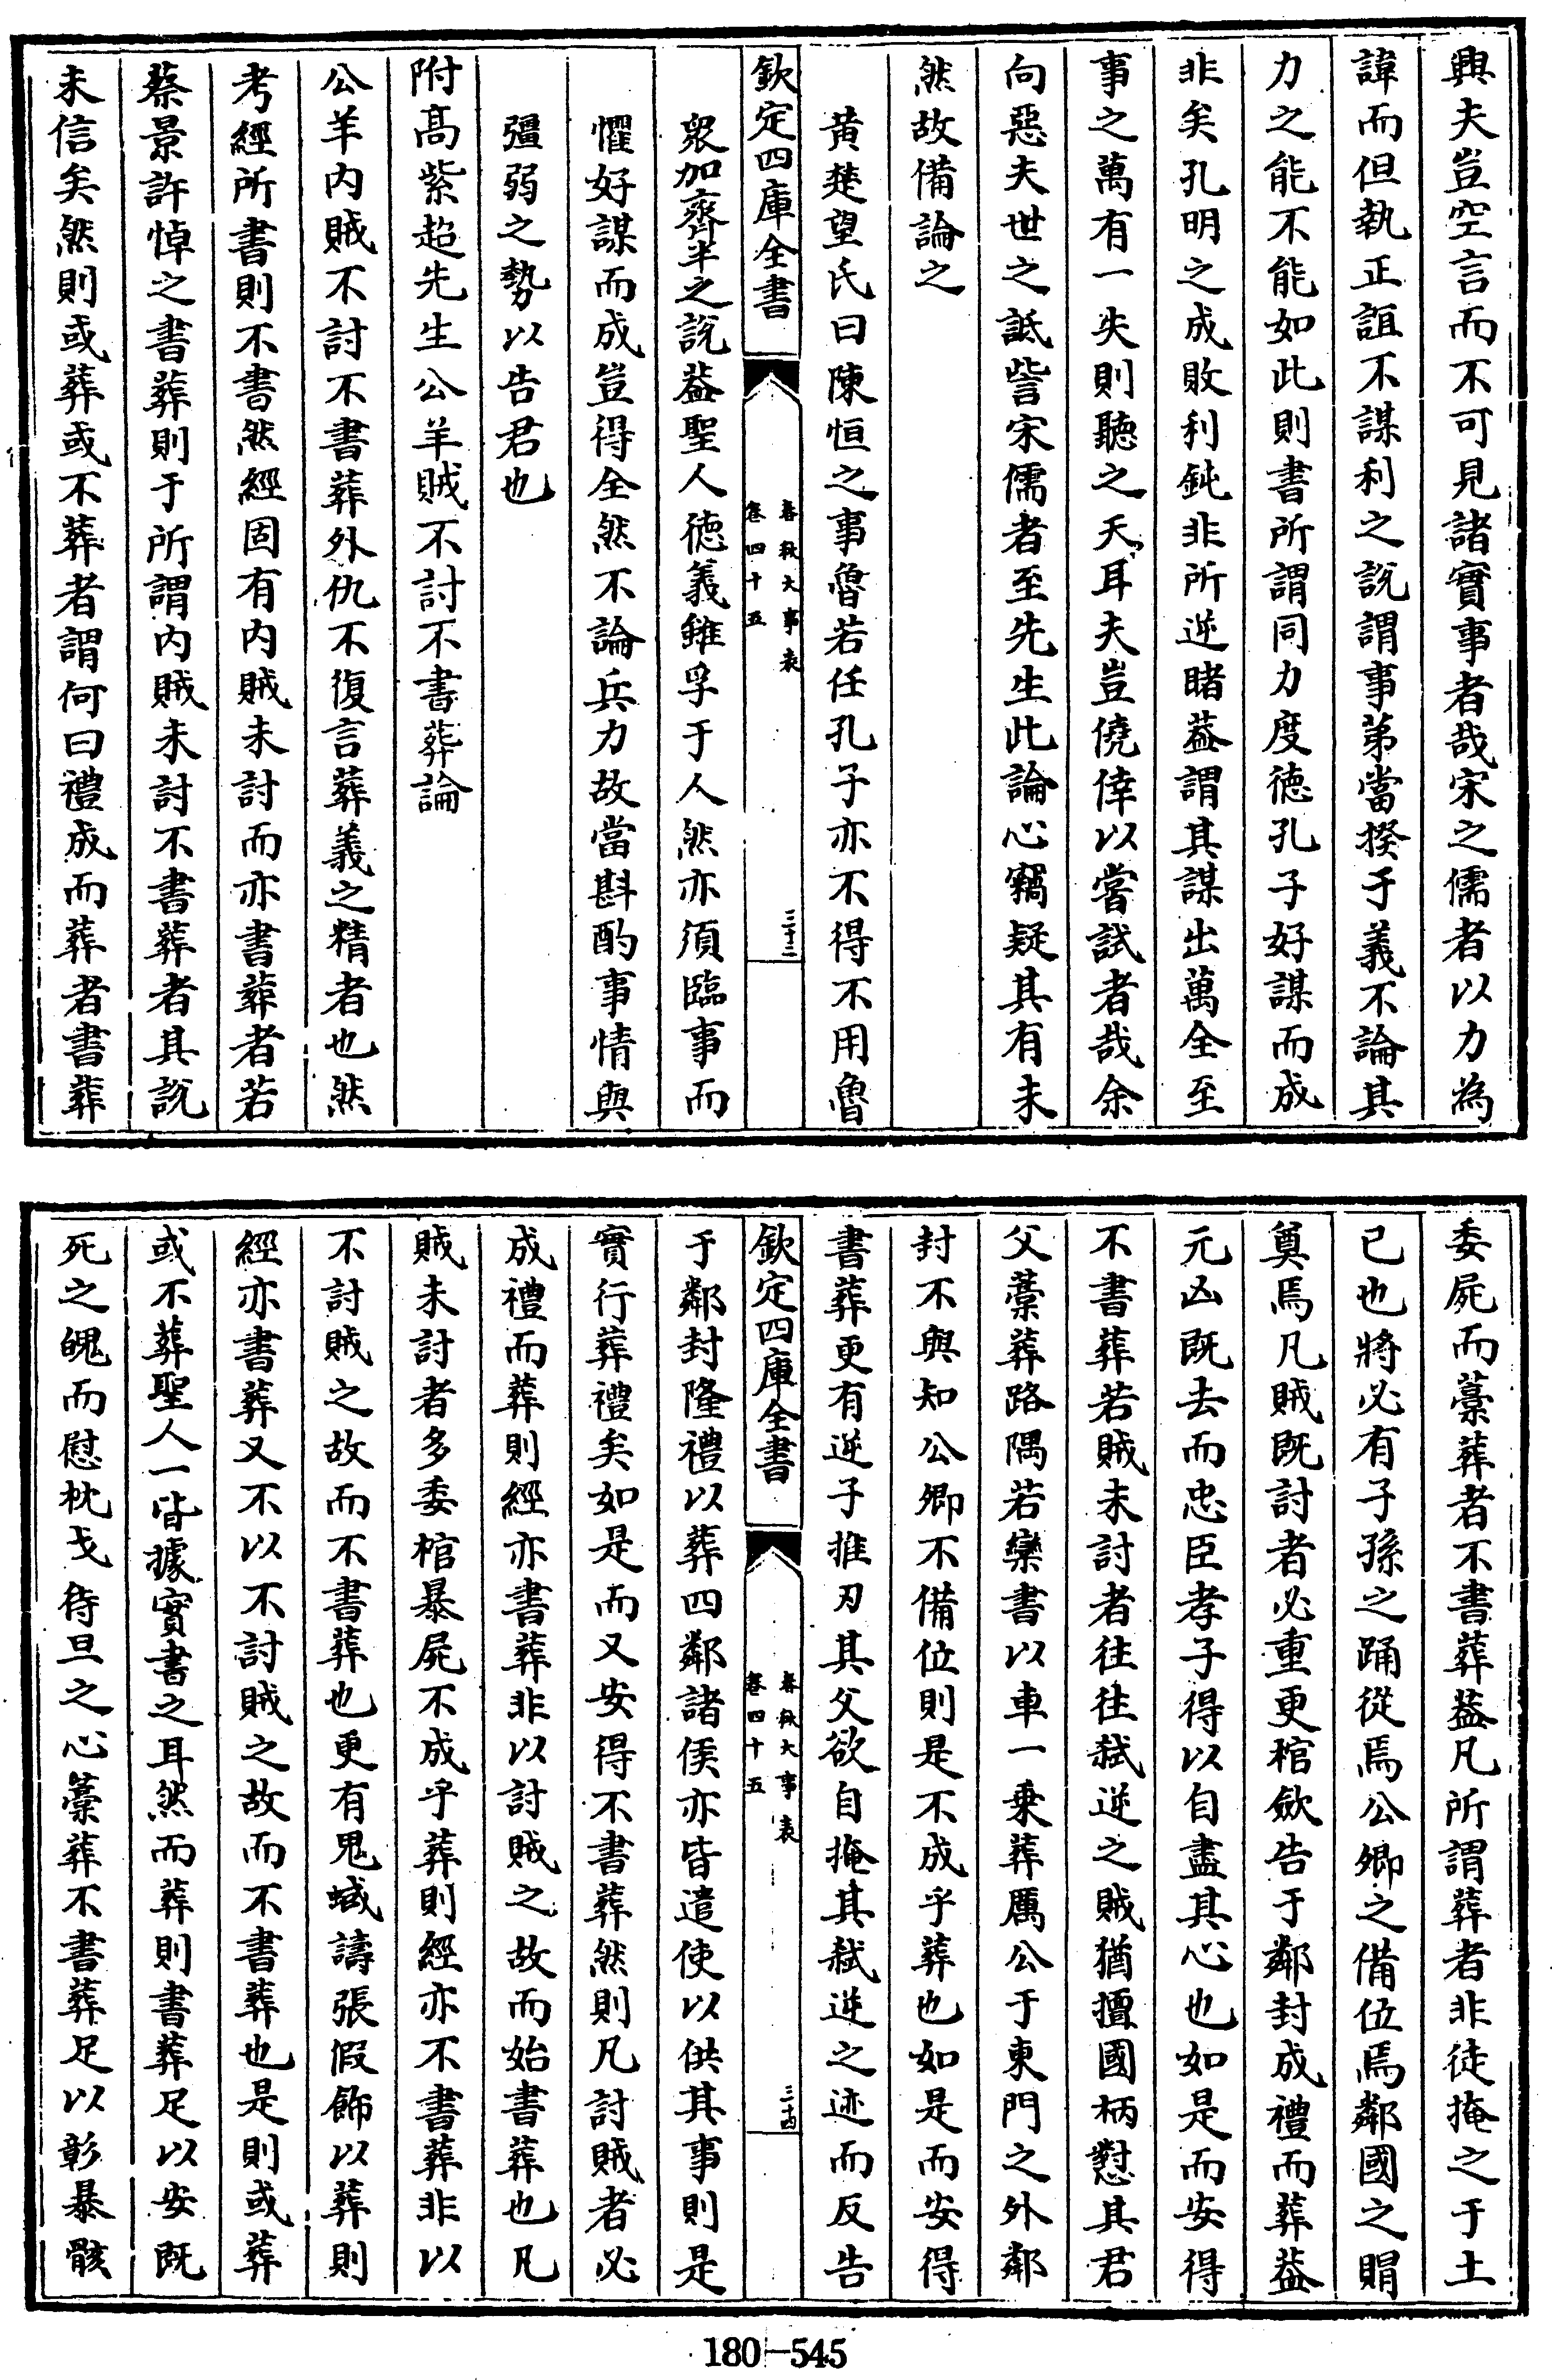 興夫豈空言而不可見諸實事者哉宋之儒者以力為
諱而但執正誼不謀利之說謂事第當揆于義不論其
力之能不能如此則書所謂同力度徳孔子好謀而成
非矣孔明之成敗利鈍非所逆睹葢謂其謀出萬全至
事之萬有一失則聽之天耳夫豈僥倖以嘗試者哉余
向惡夫世之詆訾宋儒者至先生此論心竊疑其有未
然故備論之
黄楚望氏曰陳恒之事魯若任孔子亦不得不用魯
欽定四庫全書
春秋大事表
卷四十五
三十三
衆加齊半之說葢聖人徳義雖孚于人然亦須臨事而
懼好謀而成豈得全然不論兵力故當斟酌事情與
彊弱之勢以告君也
附高紫超先生公羊賊不討不書葬論
公羊内賊不討不書葬外仇不復言葬義之精者也然
考經所書則不書然經固有内賊未討而亦書葬者若
蔡景許悼之書葬則于所謂内賊未討不書葬者其說
未信矣然則或葬或不葬者謂何曰禮成而葬者書葬
委屍而藁葬者不書葬葢凡所謂葬者非徒掩之于土
已也將必有子孫之踊從焉公卿之備位焉鄰國之賵
奠焉凡賊既討者必重更棺斂告于鄰封成禮而葬葢
元凶既去而忠臣孝子得以自盡其心也如是而安得
不書葬若賊未討者往往弑逆之賊猶擅國柄懟其君
父藁葬路隅若欒書以車一乗葬厲公于東門之外鄰
封不與知公卿不備位則是不成乎葬也如是而安得
書葬更有逆子推刃其父欲自掩其弑逆之迹而反告
欽定四庫全書
春秋大事表
卷四十五
三十四
于鄰封隆禮以葬四鄰諸侯亦皆遣使以供其事則是
實行葬禮矣如是而又安得不書葬然則凡討賊者必
成禮而葬則經亦書葬非以討賊之故而始書葬也凡
賊未討者多委棺暴屍不成乎葬則經亦不書葬非以
不討賊之故而不書葬也更有鬼蜮譸張假飾以葬則
經亦書葬又不以不討賊之故而不書葬也是則或葬
或不葬聖人一皆據實書之耳然而葬則書葬足以安既
死之魄而慰枕戈待旦之心藁葬不書葬足以彰暴骸
180-545